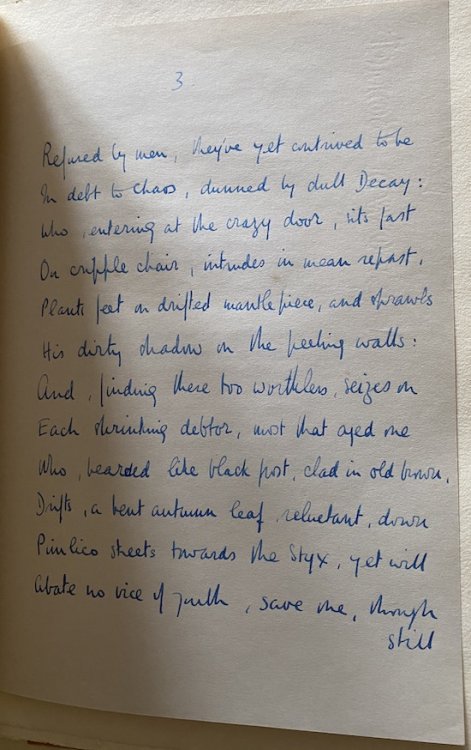 3
Refused by men, they've yet contrived to be
In debt to Chaos, dunned by dull Decay:
Who, entering at the crazy door, sits fast
On cripple chair, intrudes in mean repast,
Plants feet on drifted mantlepiece, and sprawls
His dirty shadow on the peeling walls:
And, finding these too worthless, seizes on
Each shrinking debtor, most that aged one
Who, bearded like black frost, clad in old brown,
Drifts, a bent autumn leaf, reluctant, down
Pimlico streets towards the Styx, yet will
Abate no vice of youth, save one, though
still